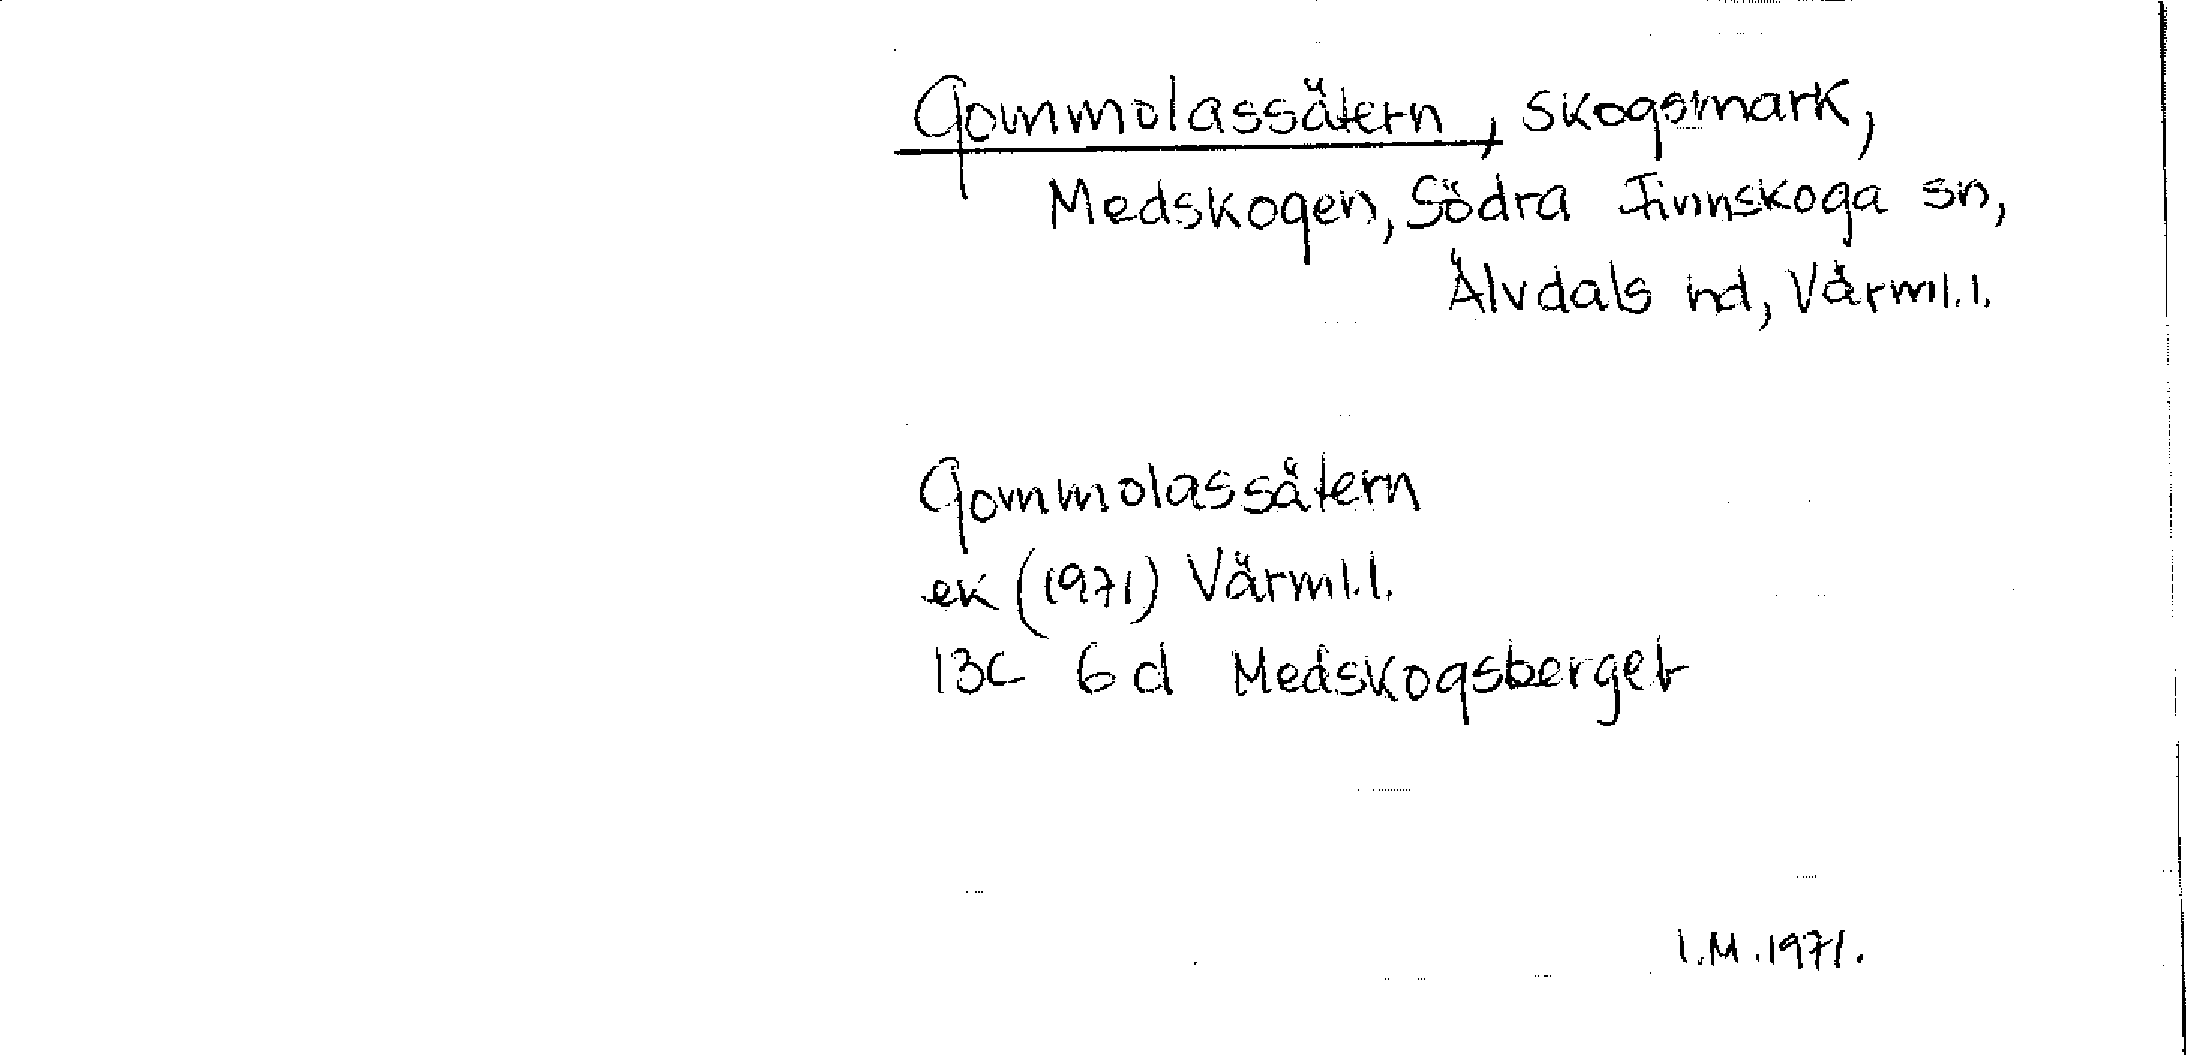 Gommolassätern, skogsmark,
Medskogen, Södra Finnskoga sn,
Älvdals hd, Värml.l.
Gommolassätern
ek (1971) Värml.l.
13C 6d Medskogsberget
I.M.1971.